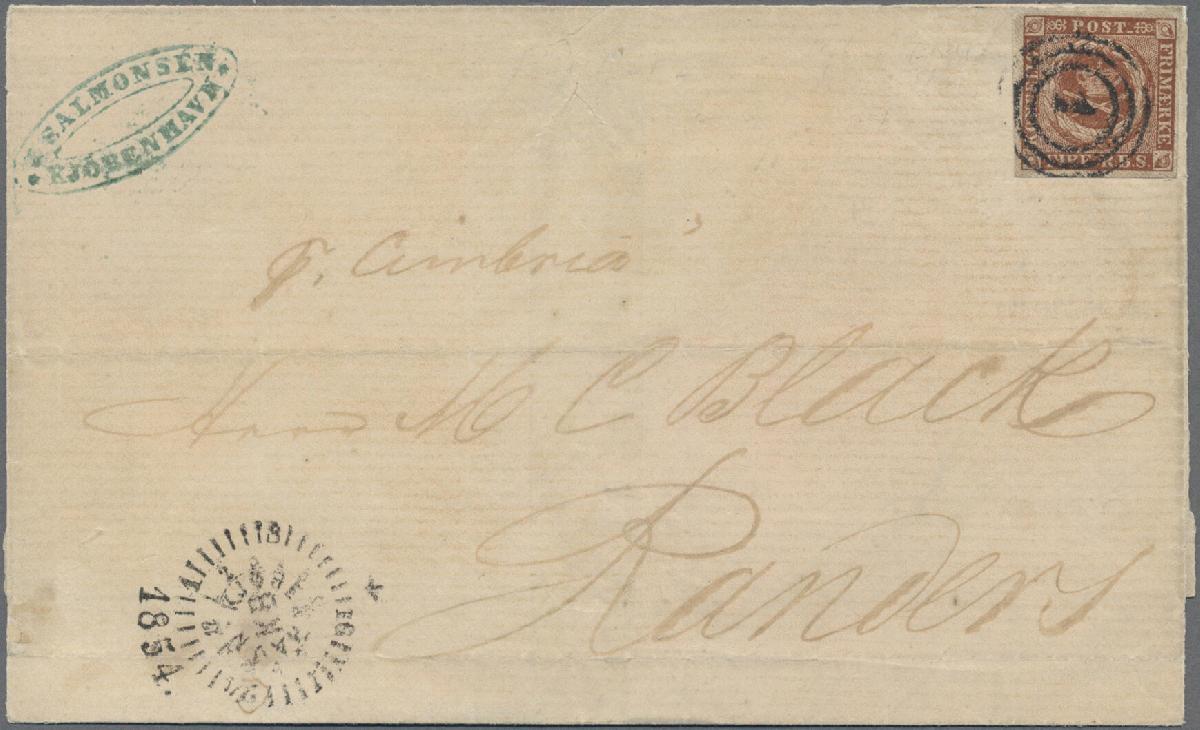 SALMONSEN
KJÖBENHAVN
POST
FRIMÆRKE
R.B.S.
1
p. Cimbria
Herr M C Black
Randers
1854.